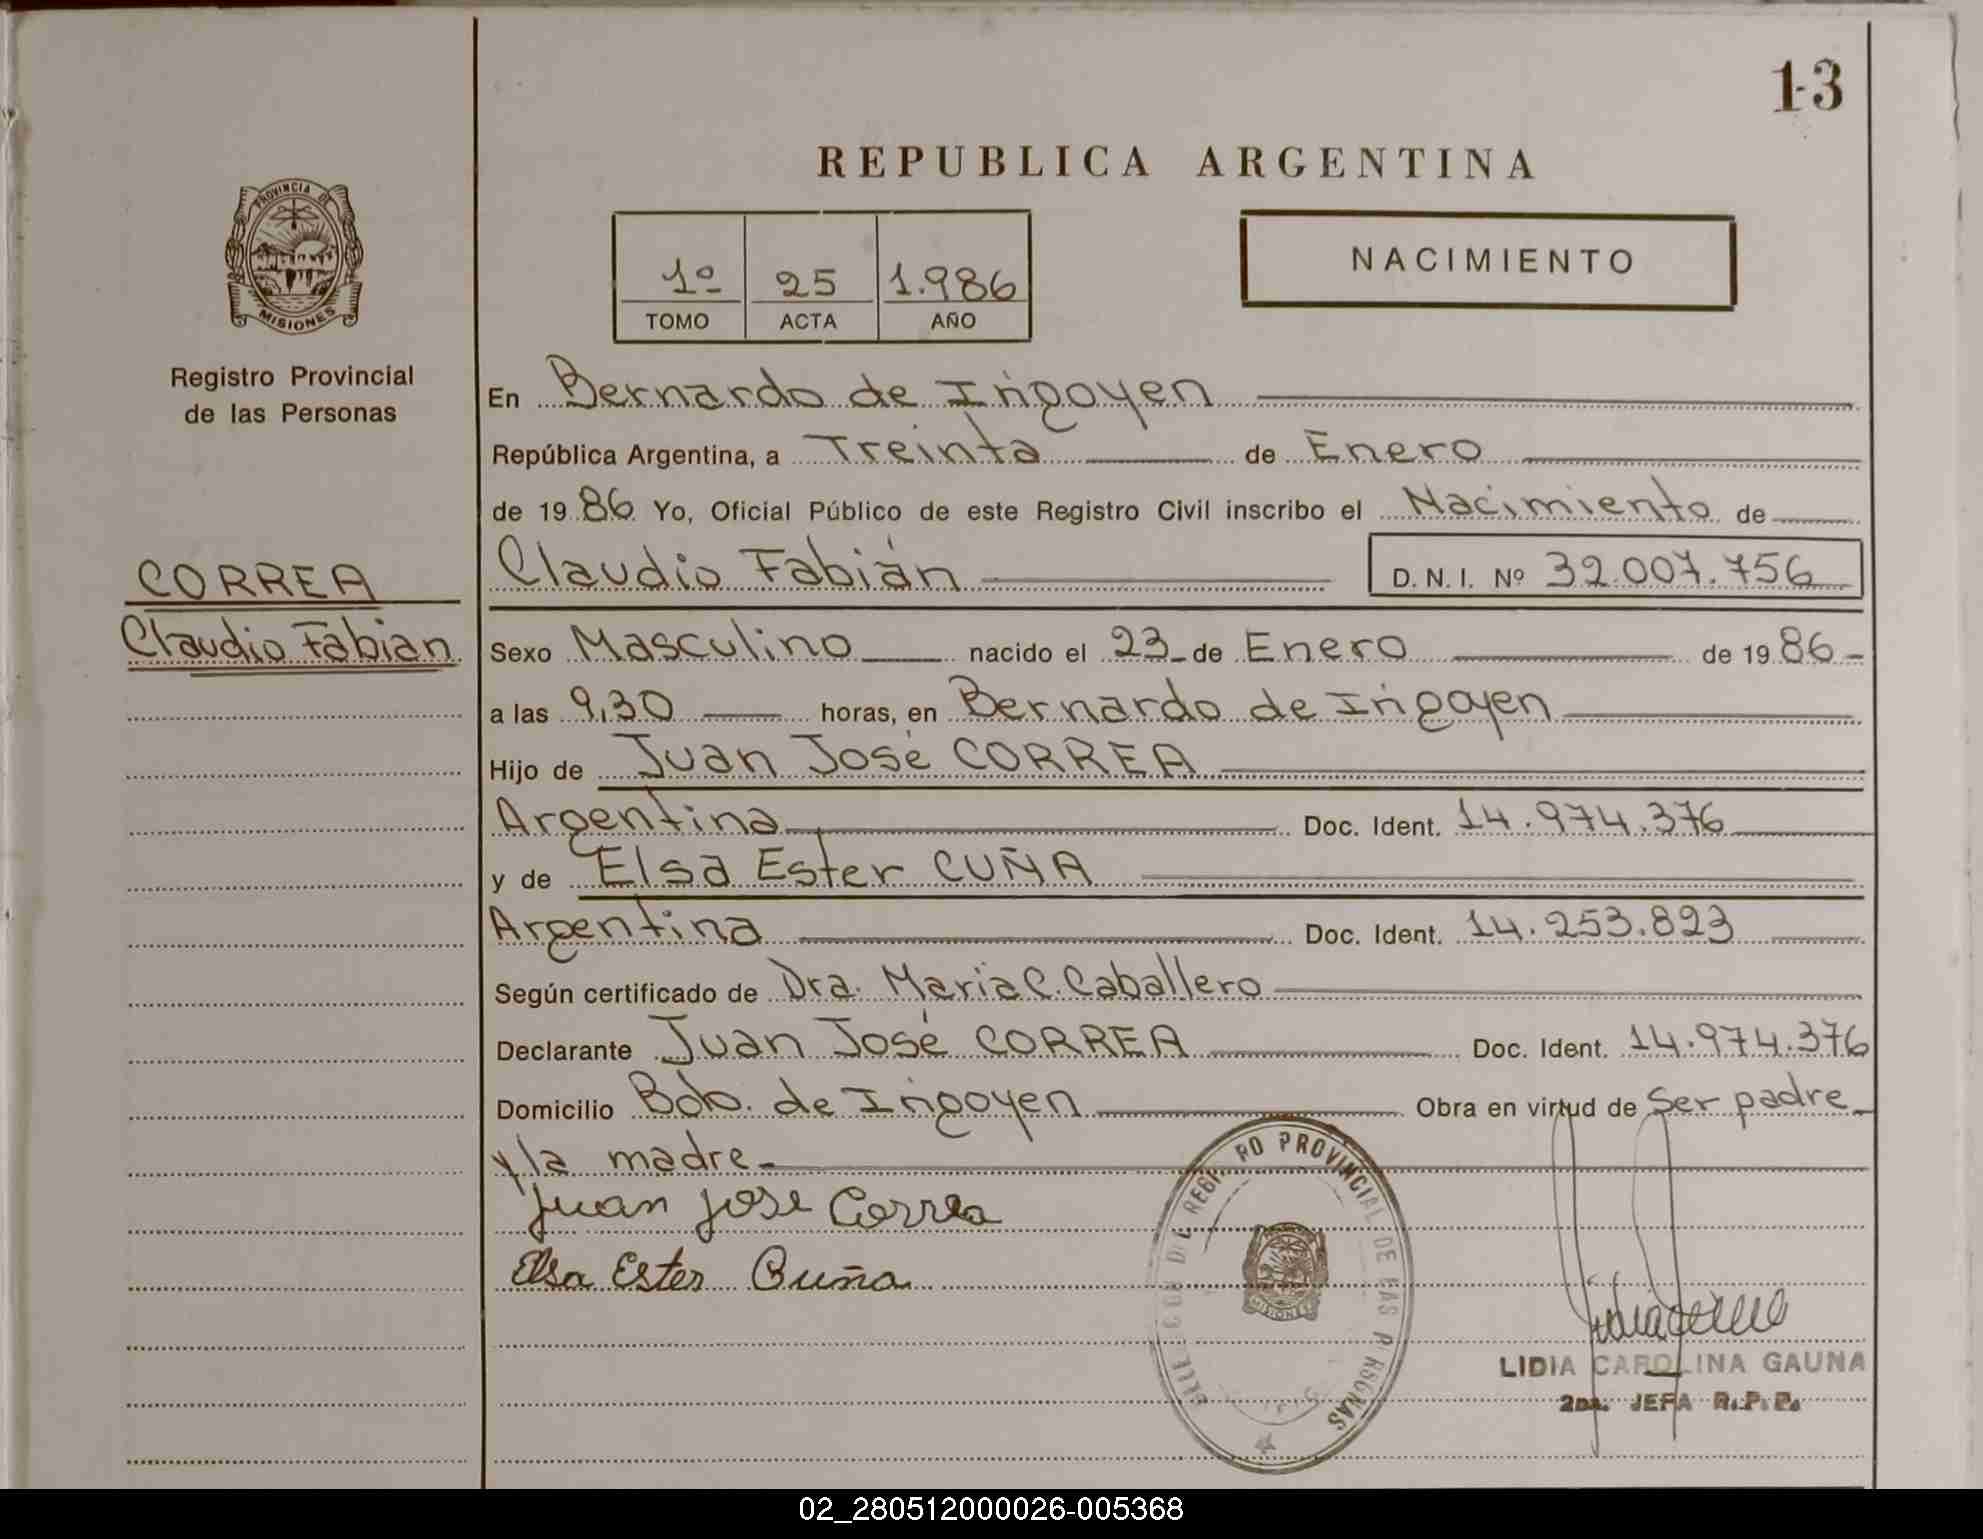 13
REPUBLICA ARGENTINA
PROVINCIA DE
MISIONES
Registro Provincial
de las Personas
1º 25 1.986
TOMO ACTA AÑO
NACIMIENTO
En Bernardo de Irigoyen
República Argentina, a Treinta de Enero
de 1986 Yo, Oficial Público de este Registro Civil inscribo el Nacimiento de
Claudio Fabián D. N. I. Nº 32.007.756
CORREA
Claudio Fabian
Sexo Masculino nacido el 23 de Enero de 1986
a las 9,30 horas, en Bernardo de Irigoyen
Hijo de Juan José CORREA
Argentina Doc. Ident. 14.974.376
y de Elsa Ester CUÑA
Argentina Doc. Ident. 14.253.823
Según certificado de Dra. María C. Caballero
Declarante Juan José CORREA Doc. Ident. 14.974.376
Domicilio Bdo. de Irigoyen Obra en virtud de Ser padre
y la madre
Juan jose Correa
Elsa Ester Cuña
PROVINCIAL DE LAS
MISIONES
LIDIA CAROLINA GAUNA
2da. JEFA R.P.P.
02_280512000026-005368